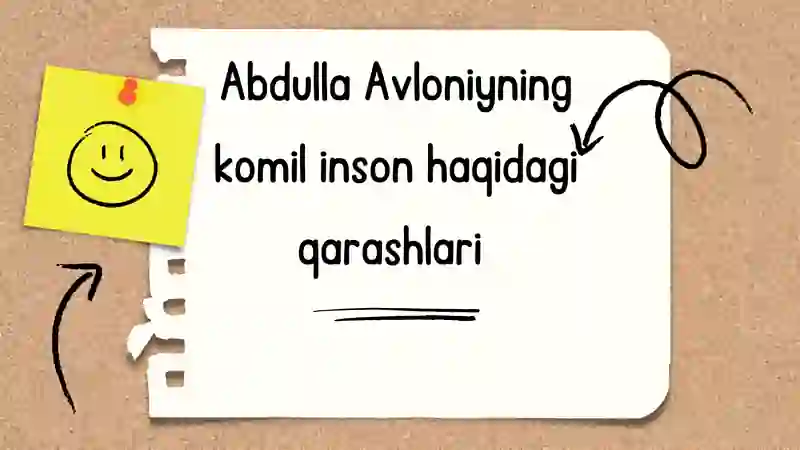 Abdulla Avloniyning
komil inson haqidagi
qarashlari